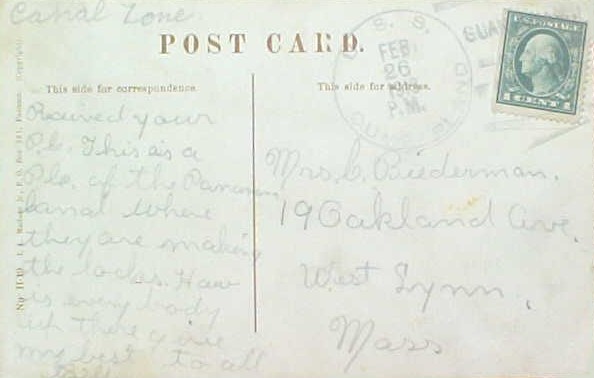 Canal Zone
POST CARD.
This side for correspondence.
This side for address.
U. S. S.
FEB
26
P.M.
GUA
U.S. POSTAGE
1 CENT 1
Received your
P.C. This is a
Pic. of the Panama
Canal where
they are making
the locks. How
is every body
up there give
my best to all
Mrs. C. Biederman.
19 Oakland Ave.
West Lynn,
Mass